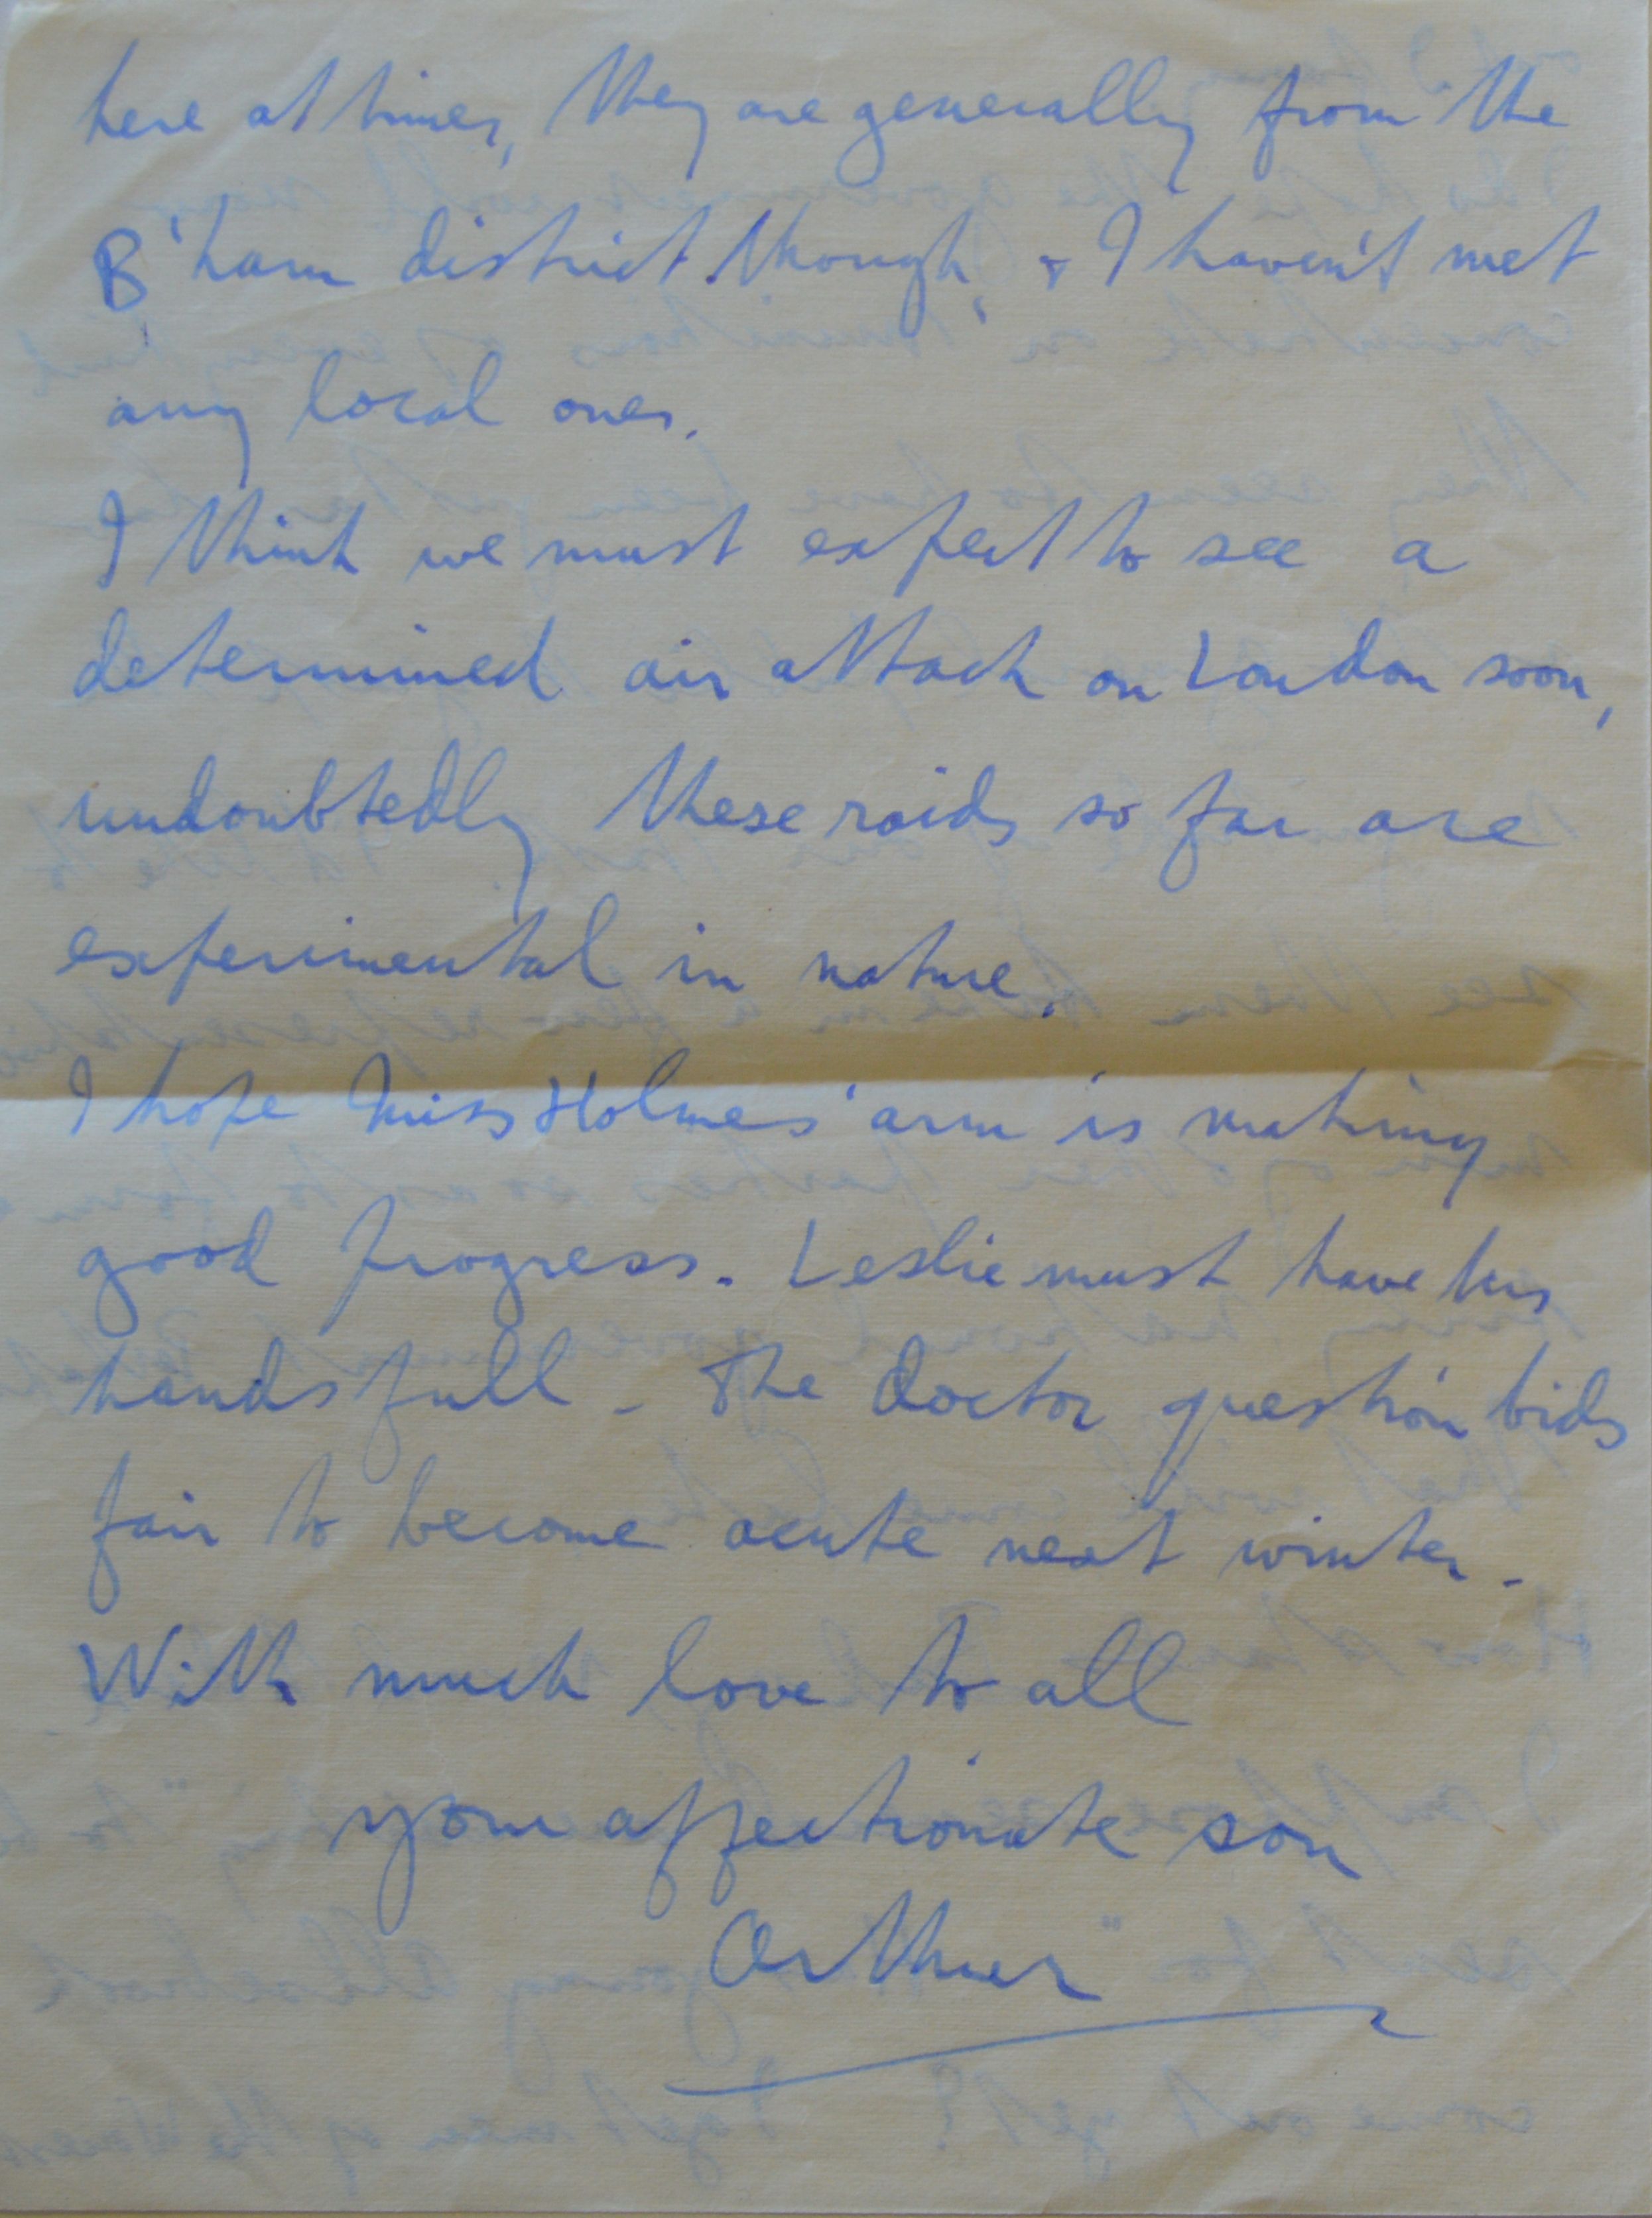 here at times, they are generally from the
B'ham district though, & I haven't met
any local ones.
I think we must expect to see a
determined air attack on London soon,
undoubtedly these raids so far are
experimental in nature.
I hope Miss Holmes' arm is making
good progress. Leslie must have his
hands full - The doctor question bids
fair to become acute next winter.
With much love to all
your affectionate son
Arthur